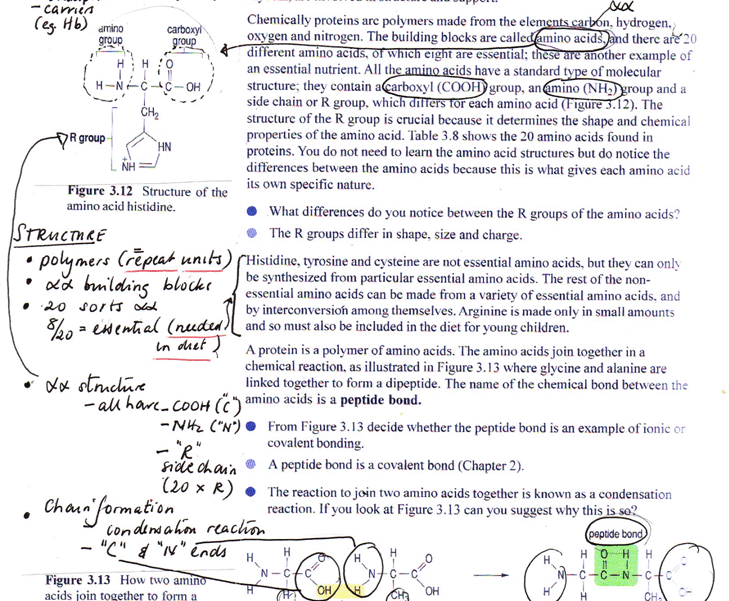 - carriers
(eg Hb)
αα
amino
group
carboxyl
group
H H O
H—N—C—C—OH
CH₂
R group
HN
NH
+
Figure 3.12 Structure of the
amino acid histidine.
Chemically proteins are polymers made from the elements carbon, hydrogen,
oxygen and nitrogen. The building blocks are called amino acids, and there are 20
different amino acids, of which eight are essential; these are another example of
an essential nutrient. All the amino acids have a standard type of molecular
structure; they contain a carboxyl (COOH) group, an amino (NH₂) group and a
side chain or R group, which differs for each amino acid (Figure 3.12). The
structure of the R group is crucial because it determines the shape and chemical
properties of the amino acid. Table 3.8 shows the 20 amino acids found in
proteins. You do not need to learn the amino acid structures but do notice the
differences between the amino acids because this is what gives each amino acid
its own specific nature.
What differences do you notice between the R groups of the amino acids?
The R groups differ in shape, size and charge.
STRUCTURE
• polymers (repeat units)
• αα building blocks
• 20 sorts αα
8/20 = essential (needed
in diet)
Histidine, tyrosine and cysteine are not essential amino acids, but they can only
be synthesized from particular essential amino acids. The rest of the non-
essential amino acids can be made from a variety of essential amino acids, and
by interconversion among themselves. Arginine is made only in small amounts
and so must also be included in the diet for young children.
A protein is a polymer of amino acids. The amino acids join together in a
chemical reaction, as illustrated in Figure 3.13 where glycine and alanine are
linked together to form a dipeptide. The name of the chemical bond between the
amino acids is a peptide bond.
• αα structure
- all have - COOH ("C")
- NH₂ ("N")
- "R"
side chain
(20 x R)
From Figure 3.13 decide whether the peptide bond is an example of ionic or
covalent bonding.
A peptide bond is a covalent bond (Chapter 2).
The reaction to join two amino acids together is known as a condensation
reaction. If you look at Figure 3.13 can you suggest why this is so?
• Chain formation
condensation reaction
- "C" & "N" ends
peptide bond
H H O H H O
N—C—C N—C—C
H OH H OH
CH₃
H H O H H O
N—C—C—N—C—C
H
Figure 3.13 How two amino
acids join together to form a